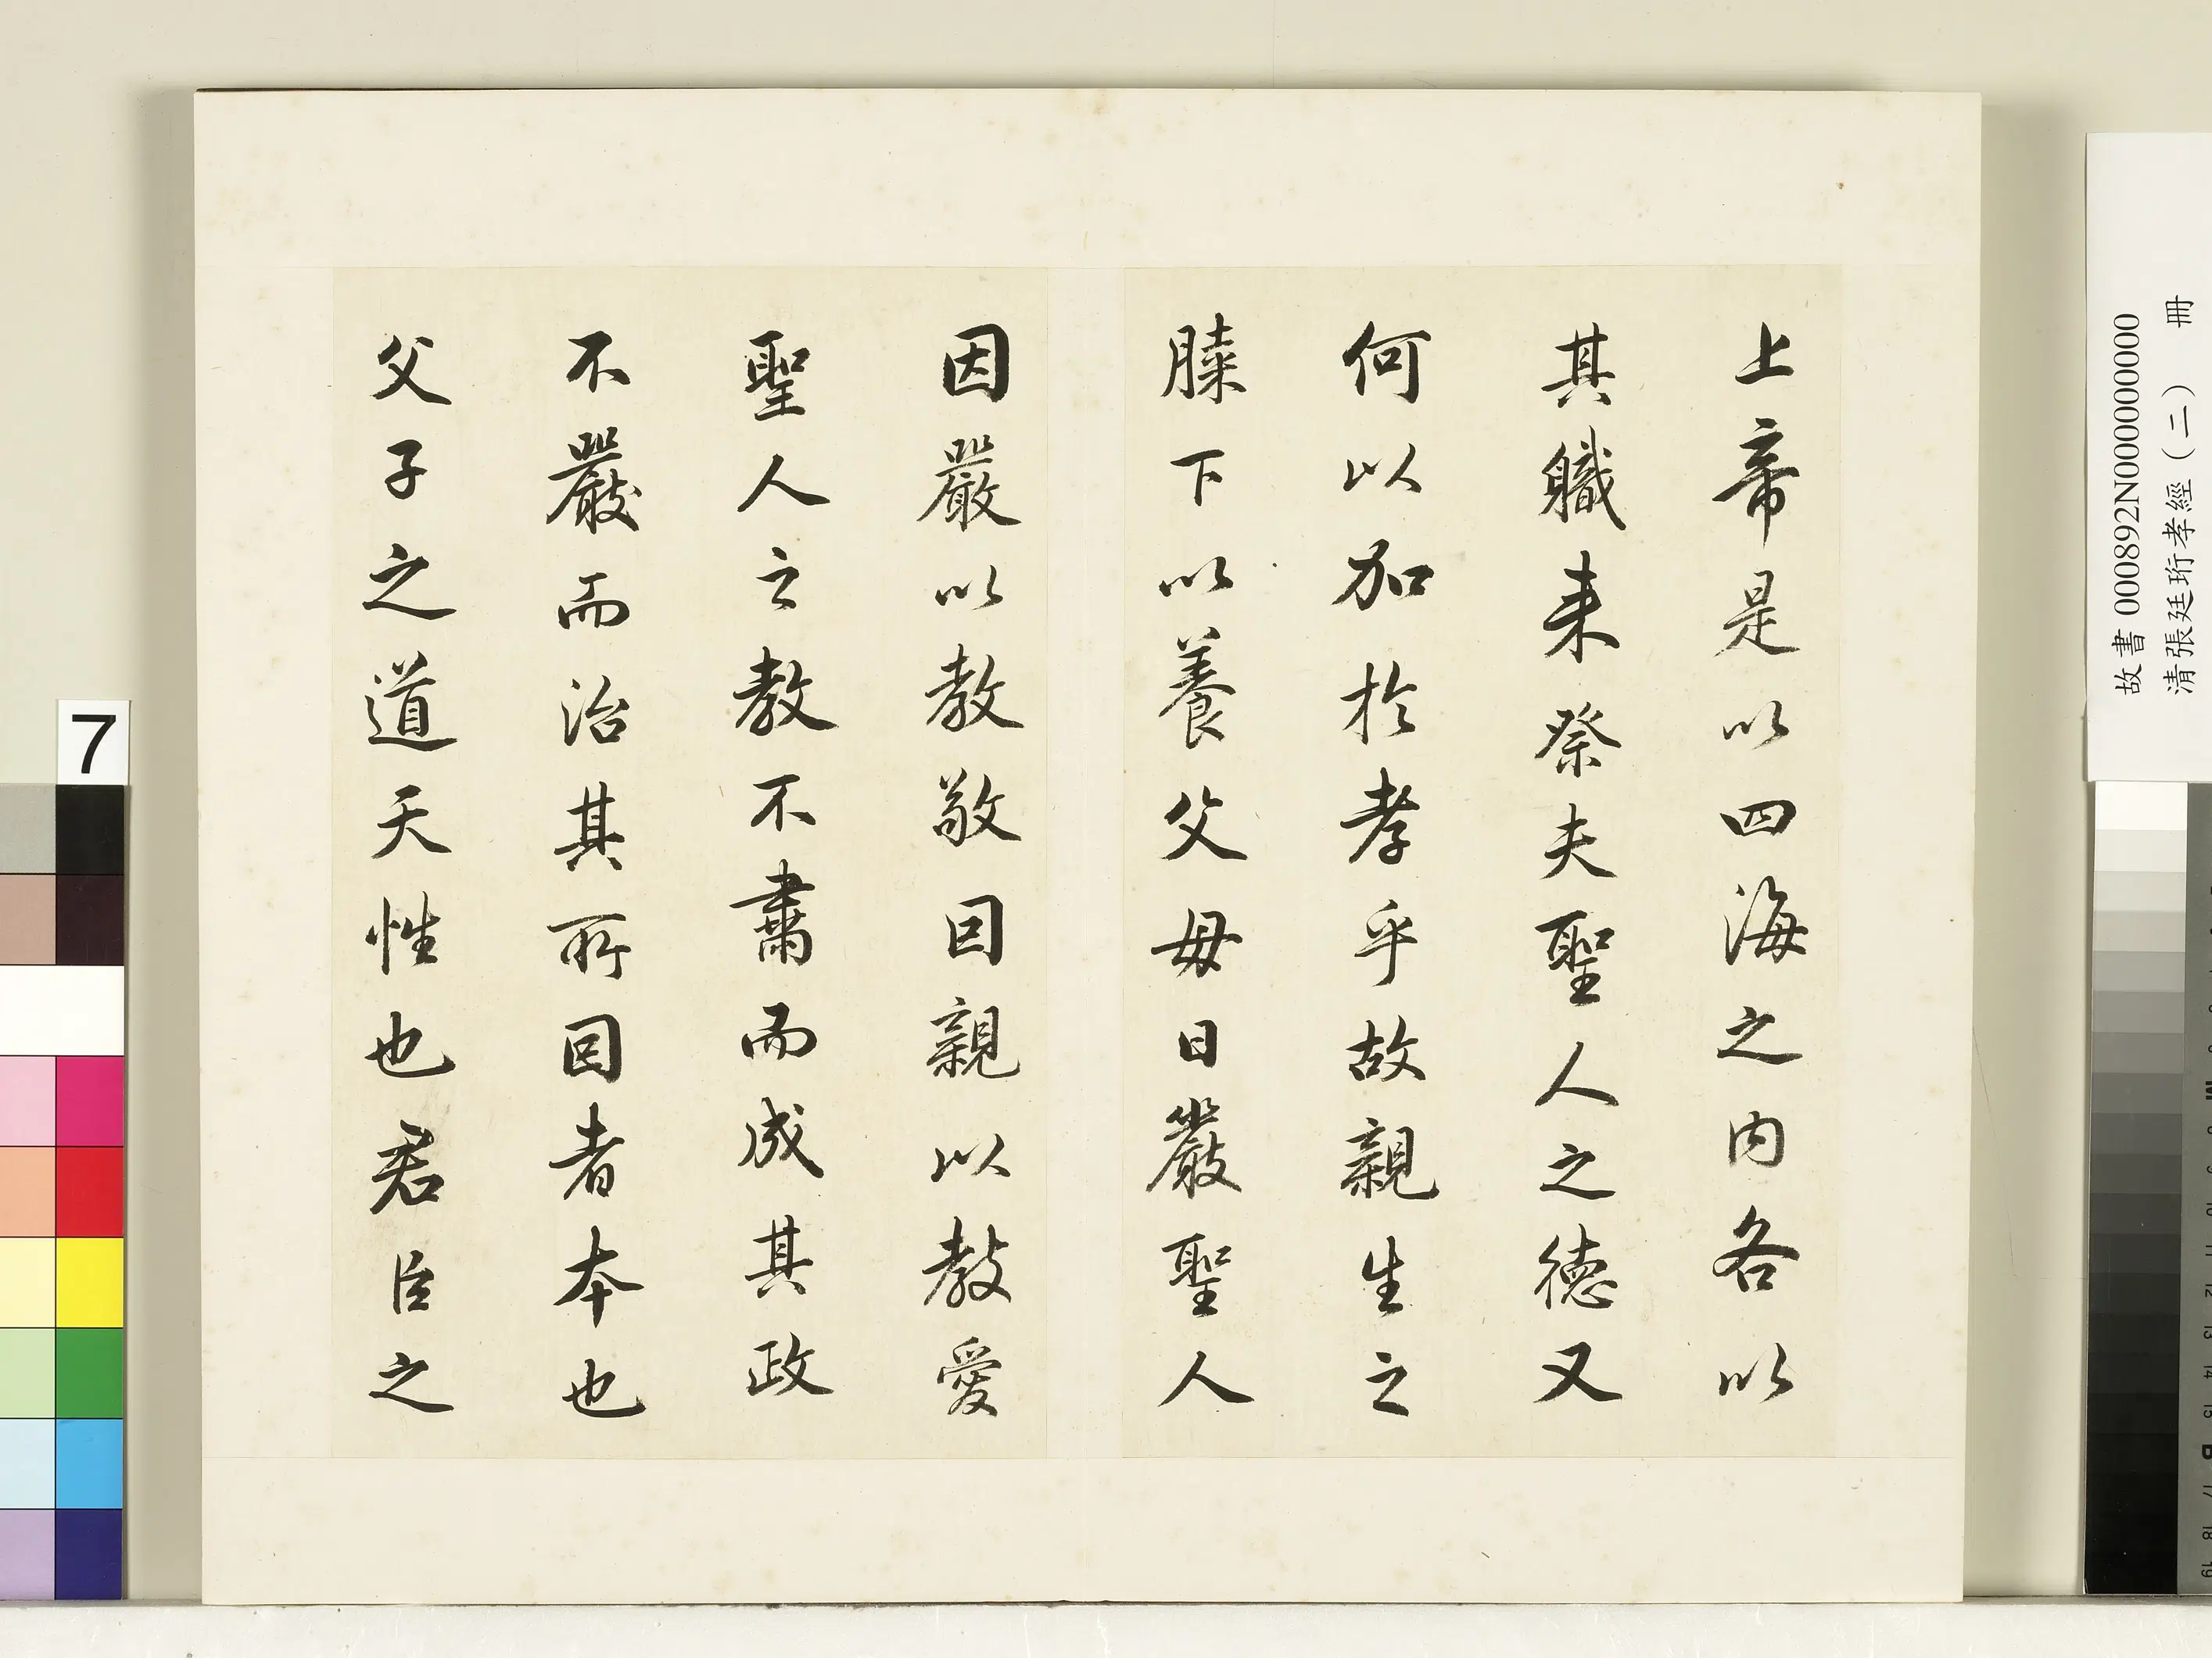 上帝是以四海之内各以
其職来祭夫聖人之德又
何以加於孝乎故親生之
膝下以養父母日嚴聖人
因嚴以教敬因親以教愛
聖人之教不肅而成其政
不嚴而治其所因者本也
父子之道天性也君臣之
故書 000892N000000000
清張廷珩孝經(二) 冊
7